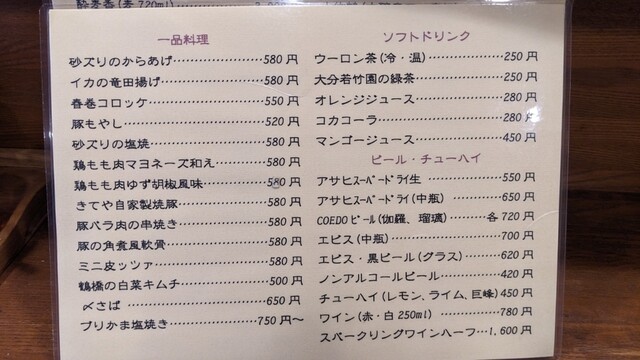 一品料理
砂ズリのからあげ……………………580 円
イカの竜田揚げ………………………580 円
春巻コロッケ…………………………550 円
豚もやし………………………………520 円
砂ズリの塩焼…………………………580 円
鶏もも肉マヨネーズ和え……………580 円
鶏もも肉ゆず胡椒風味………………580 円
きてや自家製焼豚……………………580 円
豚バラ肉の串焼き……………………580 円
豚の角煮風軟骨………………………580 円
ミニ皮ッツァ…………………………580 円
鶴橋の白菜キムチ……………………500 円
〆さば ………………………………650 円
ブリかま塩焼き……………………750 円～
ソフトドリンク
ウーロン茶(冷・温)…………………250 円
大分若竹園の緑茶……………………250 円
オレンジジュース……………………280 円
コカコーラ……………………………280 円
マンゴージュース……………………450 円
ビール・チューハイ
アサヒｽｰﾊﾟｰﾄﾞﾗｲ生 …………………550 円
アサヒｽｰﾊﾟｰﾄﾞﾗｲ(中瓶) ……………650 円
COEDO ﾋﾞｰﾙ(伽羅、瑠璃)………各 720 円
エビス(中瓶)…………………………700 円
エビス・黒ビール(グラス)…………620 円
ノンアルコールビール………………420 円
チューハイ(レモン、ライム、巨峰) 450 円
ワイン(赤・白 250ml) ………………780 円
スパークリングワインハーフ…1,600 円